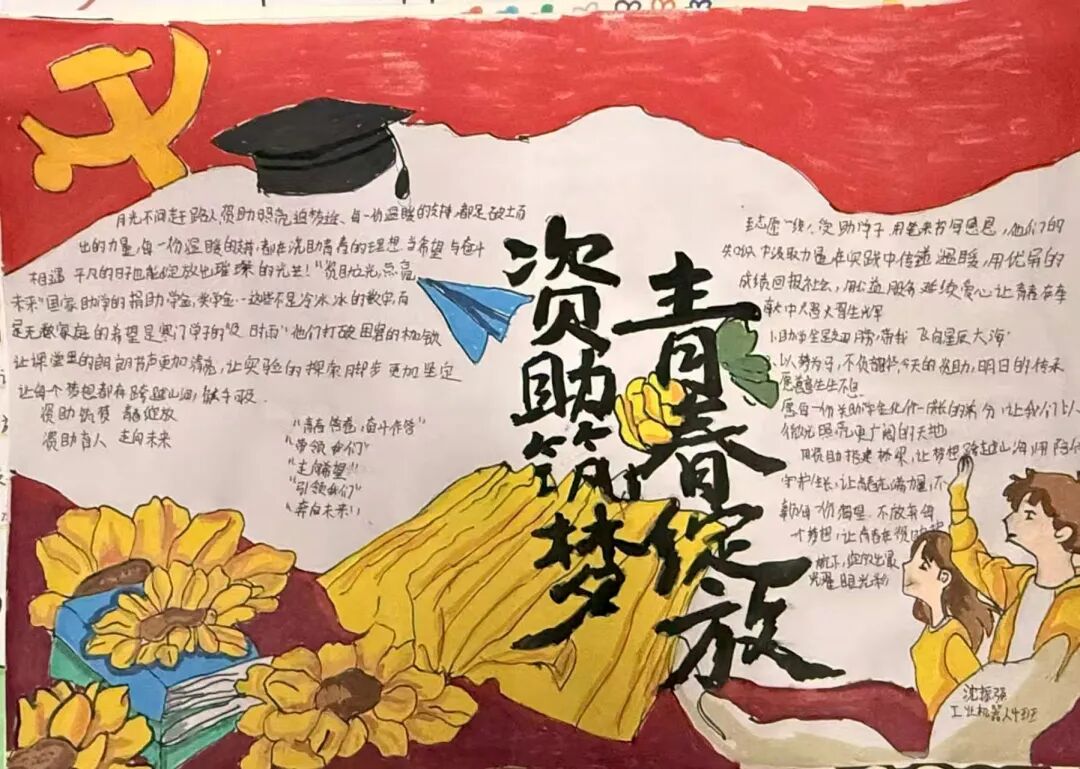 资助筑梦
青春绽放
月光不问赶路人 资助照亮追梦途、每一份温暖的支持,都是破土而
出的力量,每一份温暖的支持,都在浇助青春的理想 当希望 与奋斗
相遇 平凡的日子也能绽放出璀璨的光芒!"资助之光,点亮
未来"国家助学的捐助 学金,奖学金…这些不是冷冰冰的数字,而
是无数家庭的希望是寒门学子的"及时雨"他们打破困窘的枷锁
让课堂里的朗朗书声更加清亮,让实验的探索脚步更加坚定
让每个梦想都有跨越山海,触手可及.
资助筑梦 青春绽放
资助育人 走向未来
"青春信卷,奋斗作答"
"带领我们"
"走向希望!!
"引领我们"
"奔向未来!!
受助学子 用笔来书写感恩,他们的
知识中汲取力量,在实践中传递温暖,用优异的
成绩回报社会,用公益服务延续爱心 让青春在奉
献中
星辰大海"
以梦为马,不负韶华,今天的资助,明日的传承
愿 生生不息
愿每一份关助学 化作 让我们以
微光照亮更广阔的天地
用资助搭建桥梁,让梦想跨越山海,用
守护生长,让 充满力量,不
一份渴望,不放弃每
一个梦想,让青春在资助的
下,绽放出最
耀眼光彩
沈振强
工业机器人